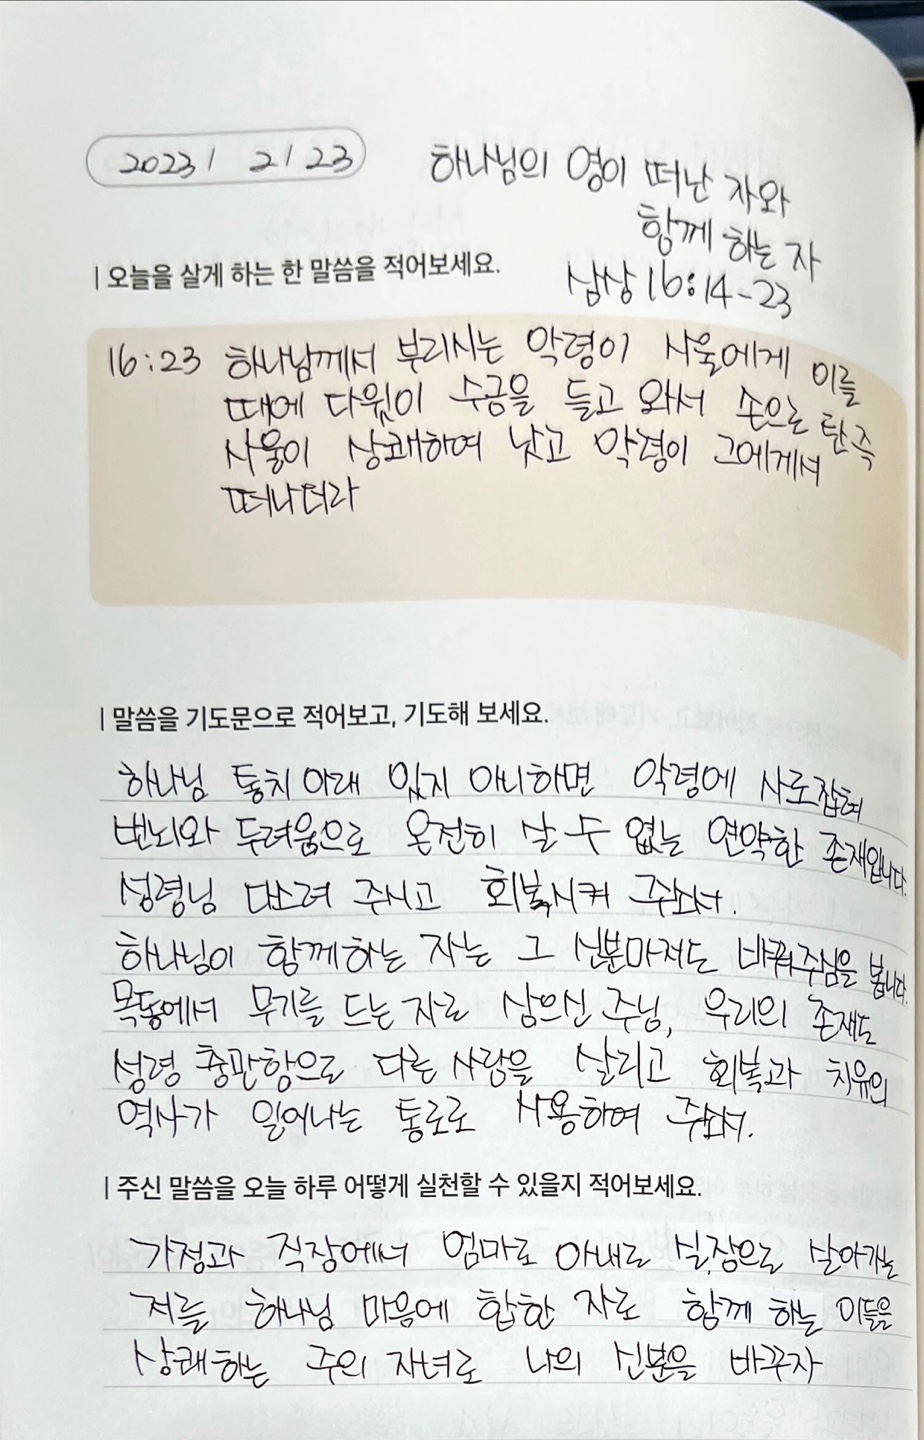 2023 / 2 / 23
하나님의 영이 떠난 자와
함께 하는 자
삼상 16:14-23
| 오늘을 살게 하는 한 말씀을 적어보세요.
16:23 하나님께서 부리시는 악령이 사울에게 이를
때에 다윗이 수금을 들고 와서 손으로 탄즉
사울이 상쾌하여 낫고 악령이 그에게서
떠나더라
| 말씀을 기도문으로 적어보고, 기도해 보세요.
하나님 통치 아래 있지 아니하면 악령에 사로잡혀
번뇌와 두려움으로 온전히 살 수 없는 연약한 존재입니다.
성령님 다스려 주시고 회복시켜 주소서.
하나님이 함께하는 자는 그 신분마저도 바꿔주심을 봅니다.
목동에서 무기를 드는 자로 삼으신 주님, 우리의 존재도
성령 충만함으로 다른 사람을 살리고 회복과 치유의
역사가 일어나는 통로로 사용하여 주소서.
| 주신 말씀을 오늘 하루 어떻게 실천할 수 있을지 적어보세요.
가정과 직장에서 엄마로 아내로 실장으로 살아가는
저를 하나님 마음에 합한 자로 함께 하는 이들을
상쾌하는 주의 자녀로 나의 신분을 바꾸자